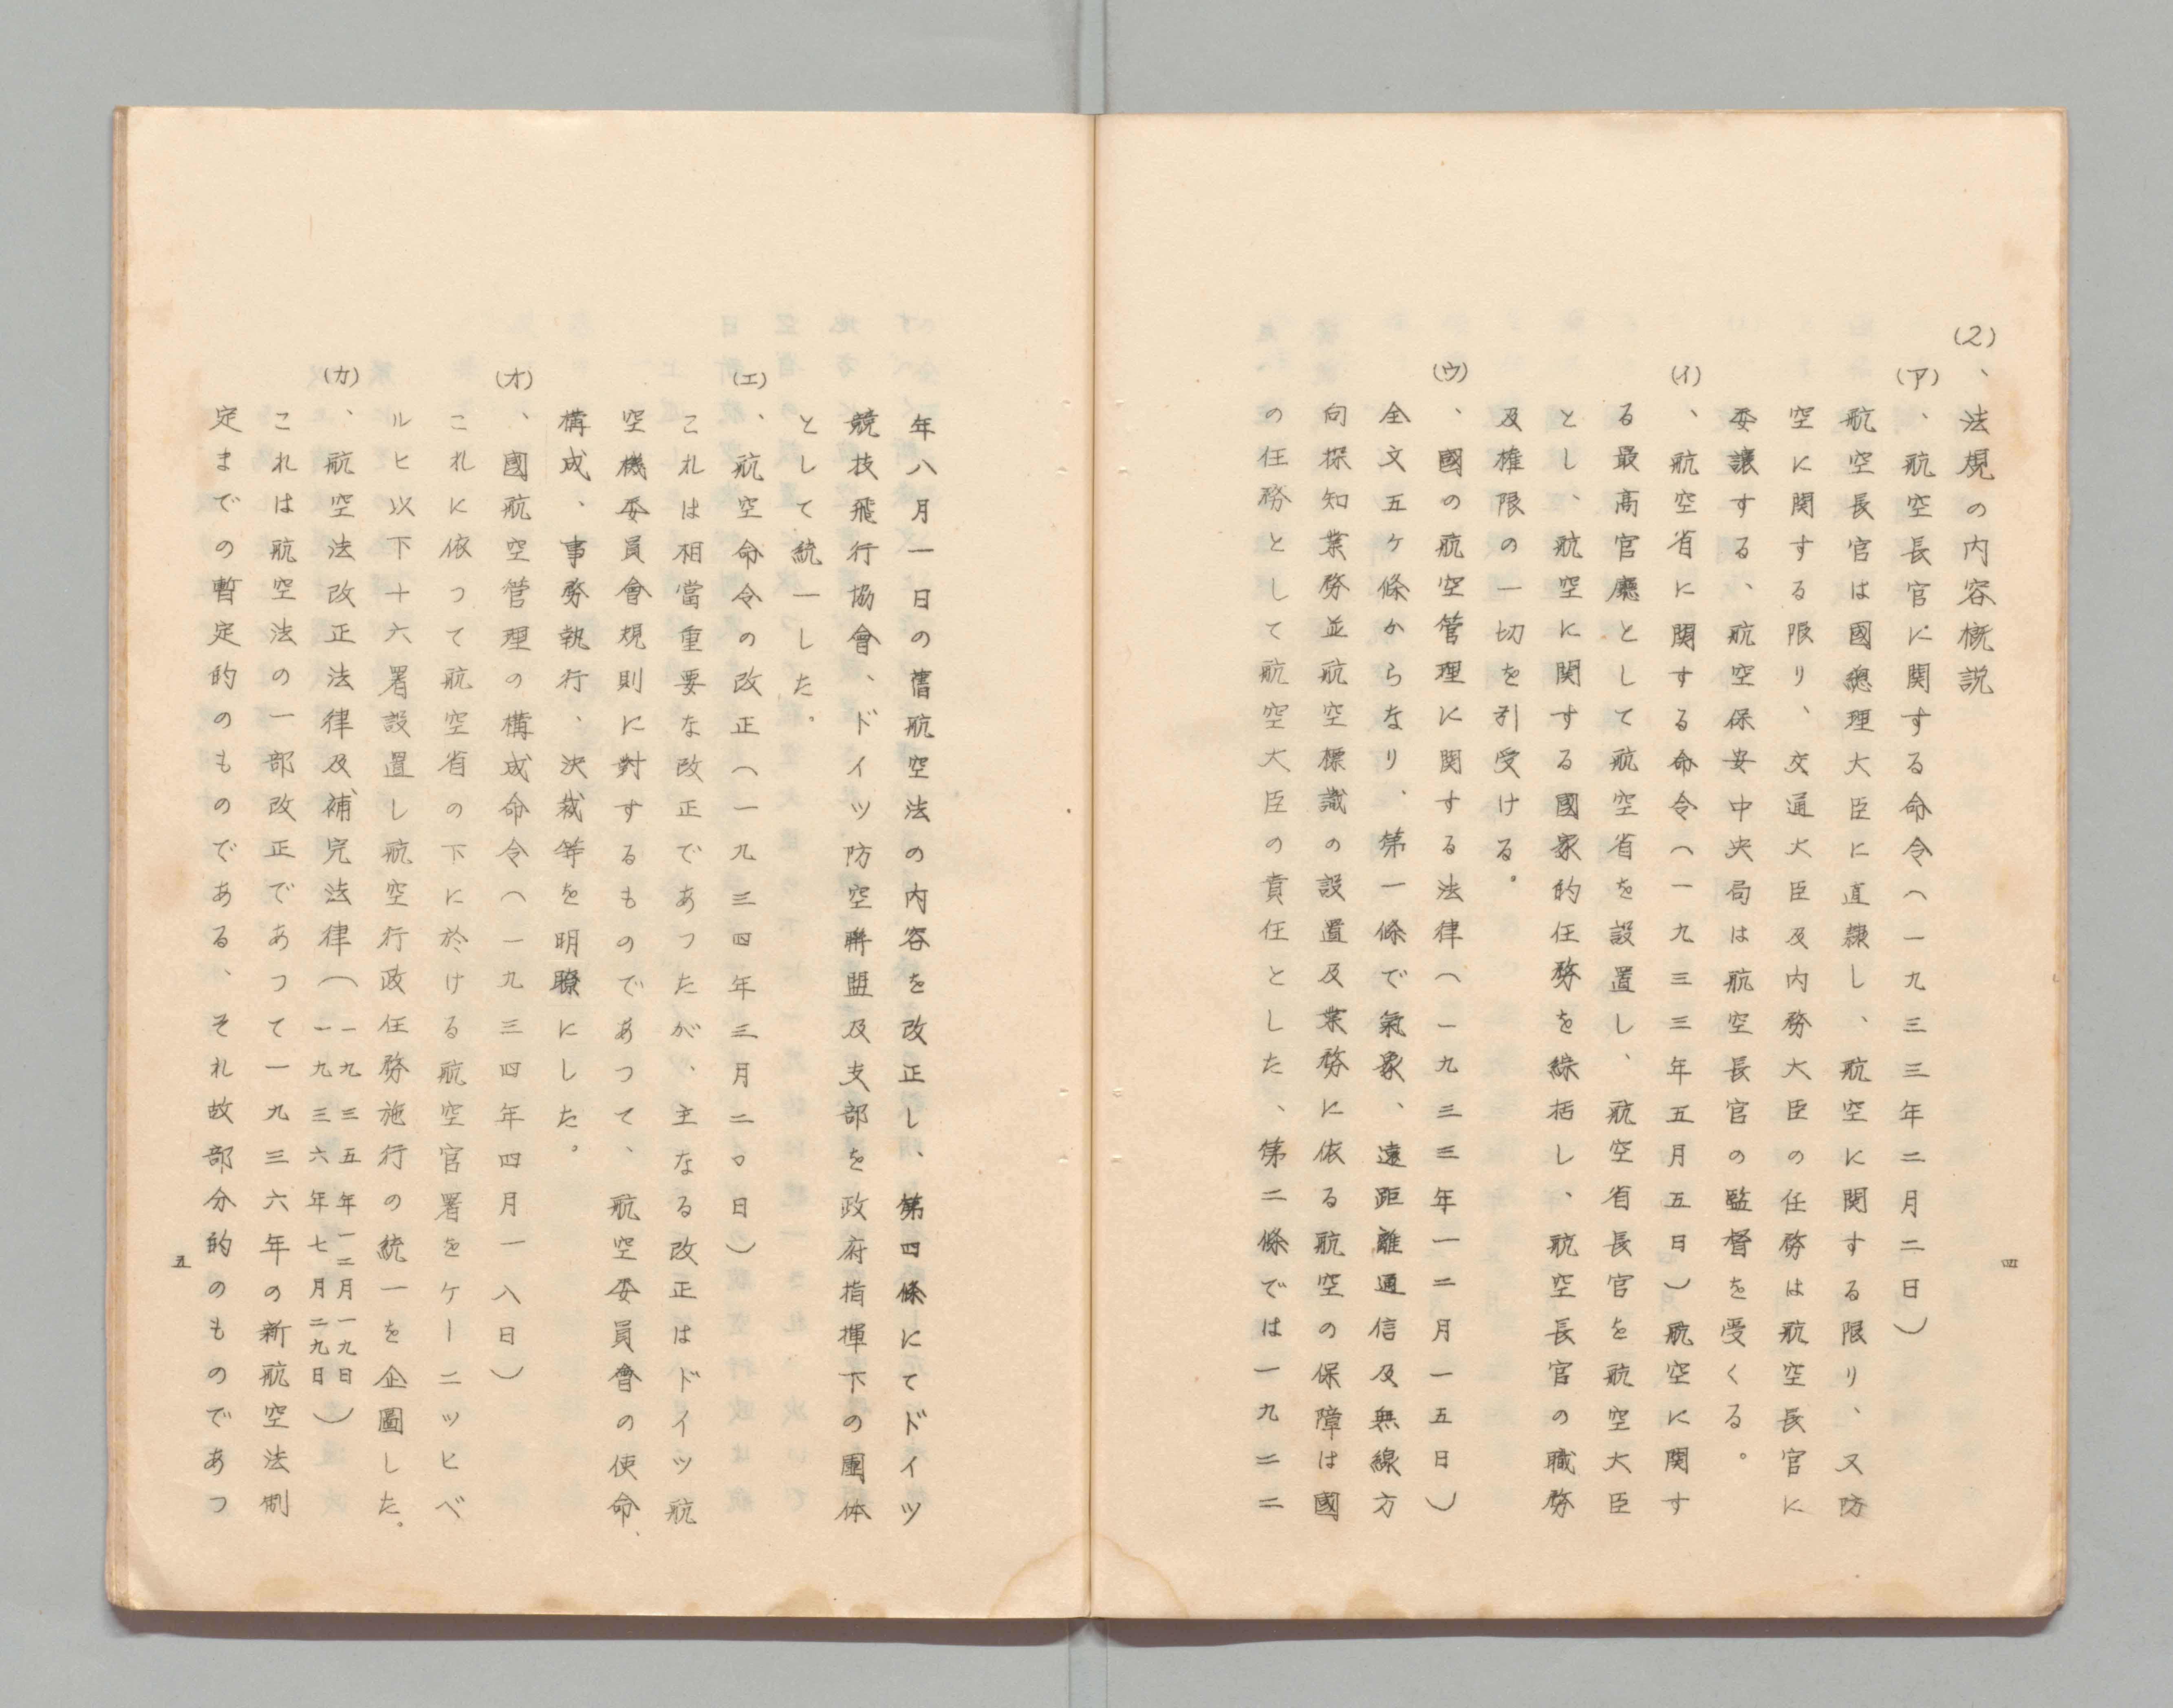 (2)、法規の内容概説
(ア)、航空長官に関する命令(一九三三年二月二日)
航空長官は國總理大臣に直隷し、航空に関する限り、又防
空に関する限り、交通大臣及内務大臣の任務は航空長官に
委讓する、航空保安中央局は航空長官の監督を受くる。
(イ)、航空省に関する命令(一九三三年五月五日)航空に関す
る最高官廳として航空省を設置し、航空省長官を航空大臣
とし、航空に関する國家的任務を綜括し、航空長官の職務
及権限の一切を引受ける。
(ウ)、國の航空管理に関する法律(一九三三年一二月一五日)
全文五ヶ條からなり、第一條で氣象、遠距離通信及無線方
向探知業務並航空標識の設置及業務に依る航空の保障は國
の任務として航空大臣の責任とした、第二條では一九二二
四
年八月一日の舊航空法の内容を改正し、第四條にてドイツ
競技飛行協會、ドイツ防空聯盟及支部を政府指揮下の團体
として統一した。
(エ)、航空命令の改正(一九三四年三月二〇日)
これは相當重要な改正であつたが、主なる改正はドイツ航
空機委員會規則に對するものであつて、航空委員會の使命、
構成、事務執行、決裁等を明瞭にした。
(オ)、國航空管理の構成命令(一九三四年四月一八日)
これに依つて航空省の下に於ける航空官署をケーニッヒベ
ルヒ以下十六署設置し航空行政任務施行の統一を企圖した。
(カ)、航空法改正法律及補完法律(一九三五年一二月一九日
一九三六年七月二九日)
これは航空法の一部改正であつて一九三六年の新航空法制
定までの暫定的のものである、それ故部分的のものであつ
五